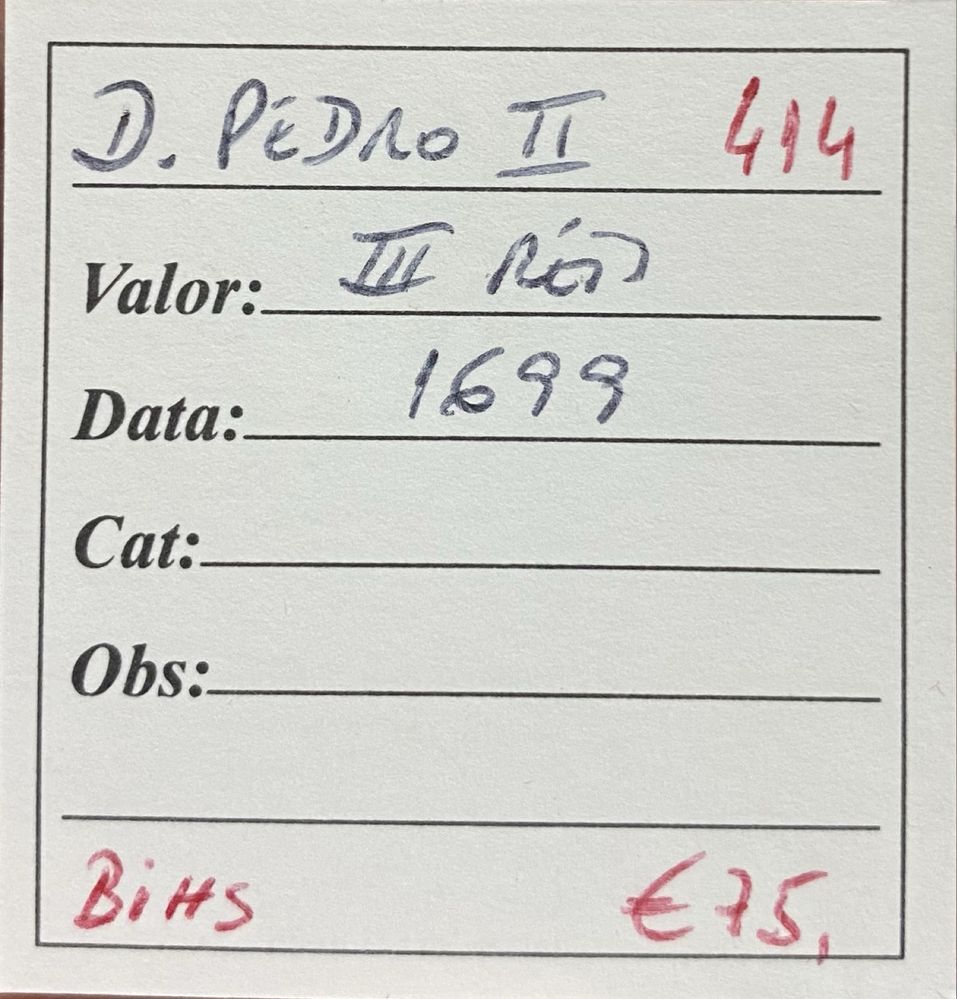 D. PEDRO II 414
Valor: III RÉIS
Data: 1699
Cat:
Obs:
€75,